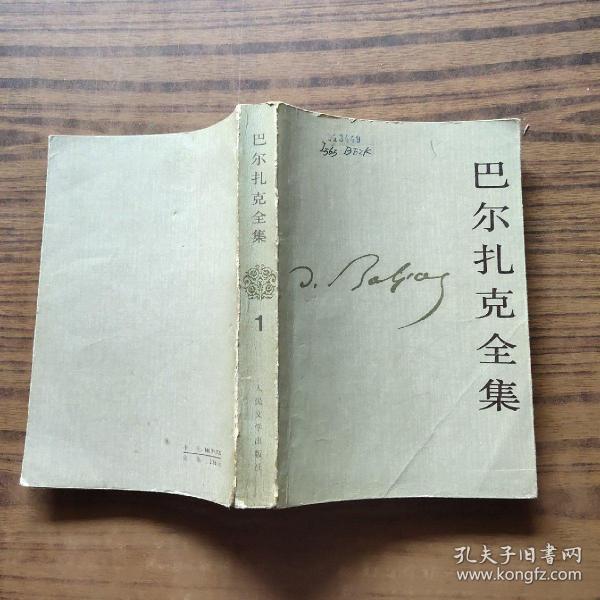 巴尔扎克全集
1
人民文学出版社
巴尔扎克全集
de Balzac
孔夫子旧书网
www.kongfz.com